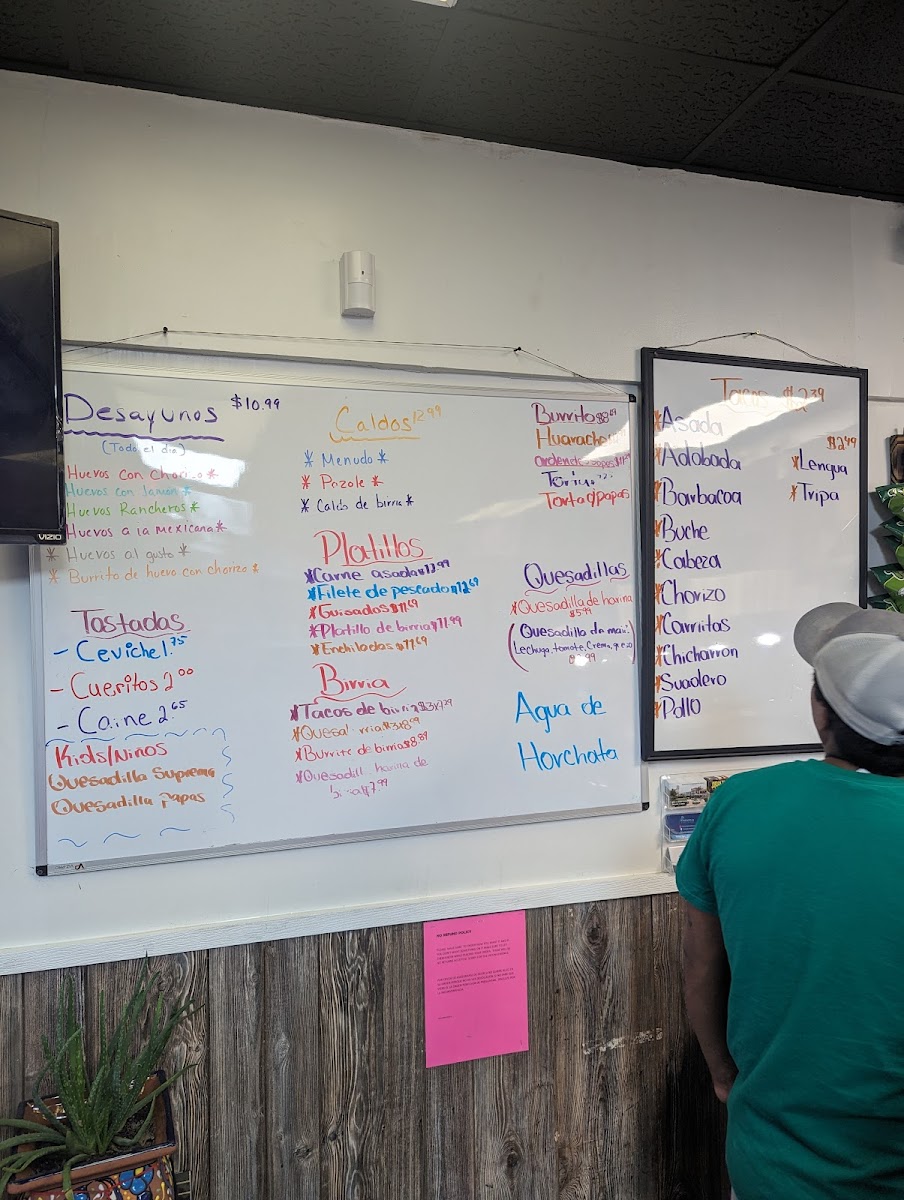 VIZIO
Desayunos $10.99
(Todo el dia)
Huevos con Chorizo *
Huevos con Jamón *
Huevos Rancheros *
Huevos a la mexicana *
* Huevos al gusto *
* Burrito de huevo con chorizo *
Tostadas
- Ceviche 1.75
- Cueritos 2.00
- Carne 2.65
Kids/Niños
Quesadilla Suprema
Quesadilla Papas
Caldos 12.99
* Menudo *
* Pozole *
* Caldo de birria *
Platillos
*Carne asada $13.99
*Filete de pescado $12.69
*Guisados $11.69
*Platillo de birria $11.99
*Enchiladas $11.69
Birria
*Tacos de birria $3x
*Quesa
*Burrito de birria $8.89
*Quesadill harina de
$7.99
Burrito
Huarache
Torta
Torta c/papas
Quesadillas
*Quesadilla de harina
$5.99
(Quesadilla de maiz
Lechuga, tomate, Crema,
Agua de
Horchata
Tacos $2.39
*Asada
*Adobada
*Barbacoa
*Buche
*Cabeza
*Chorizo
*Carnitas
*Chicharron
*Suadero
*Pollo
$2.49
*Lengua
*Tripa
NO REFUND POLICY